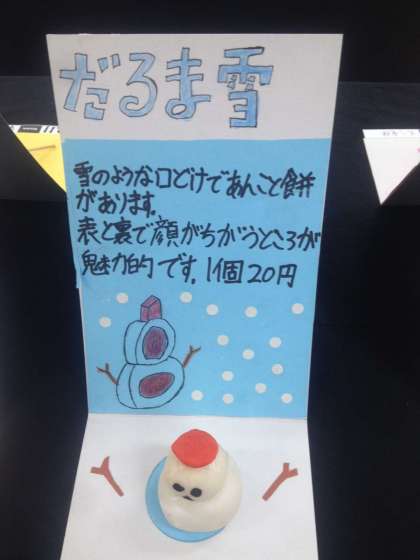 だるま雪
雪のような口どけであんこと餅
があります。
表と裏で顔がちがうところが
魅力的です。1個20円